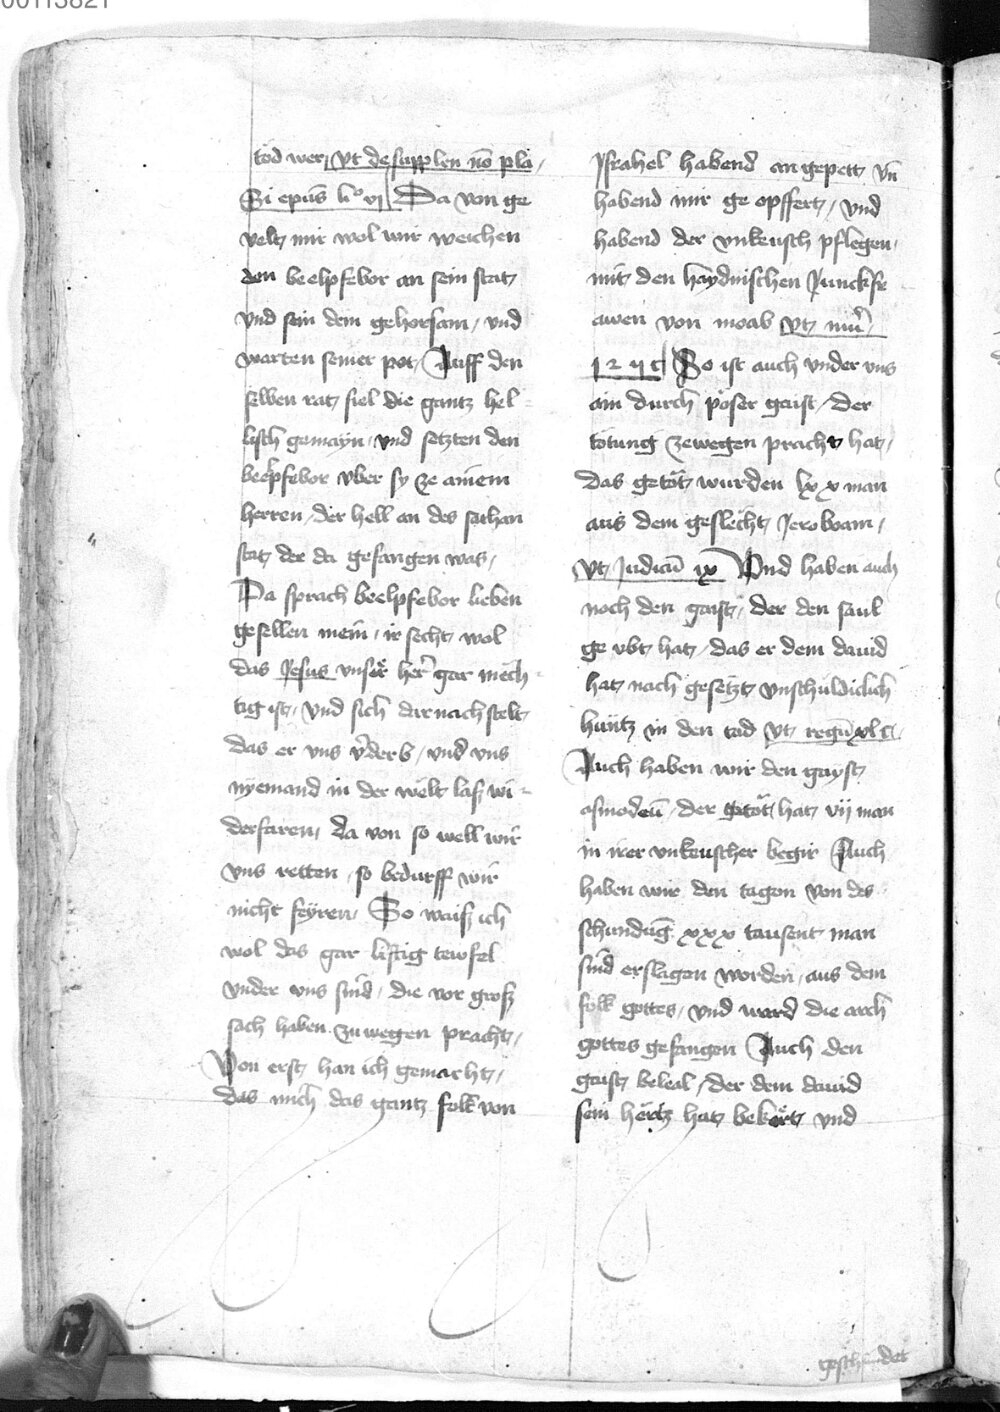 00113821
tod wer / vt de supplen no pla /
Si epūs li° vj Da von ge
velt mir wol wir weichen
den beelpfebor an sein stat
vnd sein dem gehorsam / vnd
warten seiner pot / Auff den
selben rat fiel die gantz hel
lisch gemayn / vnd setzten den
beelpfebor vber sy ze ainem
herren / der hell an des sathan
stat der da gefangen was /
Da sprach beelpfebor lieben
gesellen mein / ir secht wol
das Jesus vnser her gar mech
tig ist / vnd sich darnach stelt
das er vns v̄derb / vnd vns
nyemand in der welt lass wi
derfaren / da von so well wir
vns retten / so bedurff wir
nicht feyren / So waiss ich
wol das gar listig tewfel
vnder vns sind / die vor gross
sach haben zuwegen pracht /
Von erst han ich gemacht /
das mich das gantz folk von
Israhel habend an gepett vn̄
habend mir ge opffert / vnd
habend der vnkeusch pflegen /
mit den haydnischen Junckfr
awen von moab vt
So ist auch vnder vns
ain durch poser gaist / der
totung zewegen pracht hat /
das getöt wurden lxx man
aus dem geslecht Jeroboam /
vt Judicū ix Vnd haben auch
noch den gaist / der den saul
ge vbt hat / das er dem dauid
hat nach gesetzt vnschuldiclich
huntz in den tod vt regū
Auch haben wir den gayst
asmodeū / der getöt hat vij man
in irer vnkeuscher begir Auch
haben wir den tagon von des
schundūg xxx tausent man
sind erslagen worden / aus dem
folk gottes / vnd ward die arch
gottes gefangen Auch den
gaist beleal / der dem dauid
sein hertz hat bekört vnd